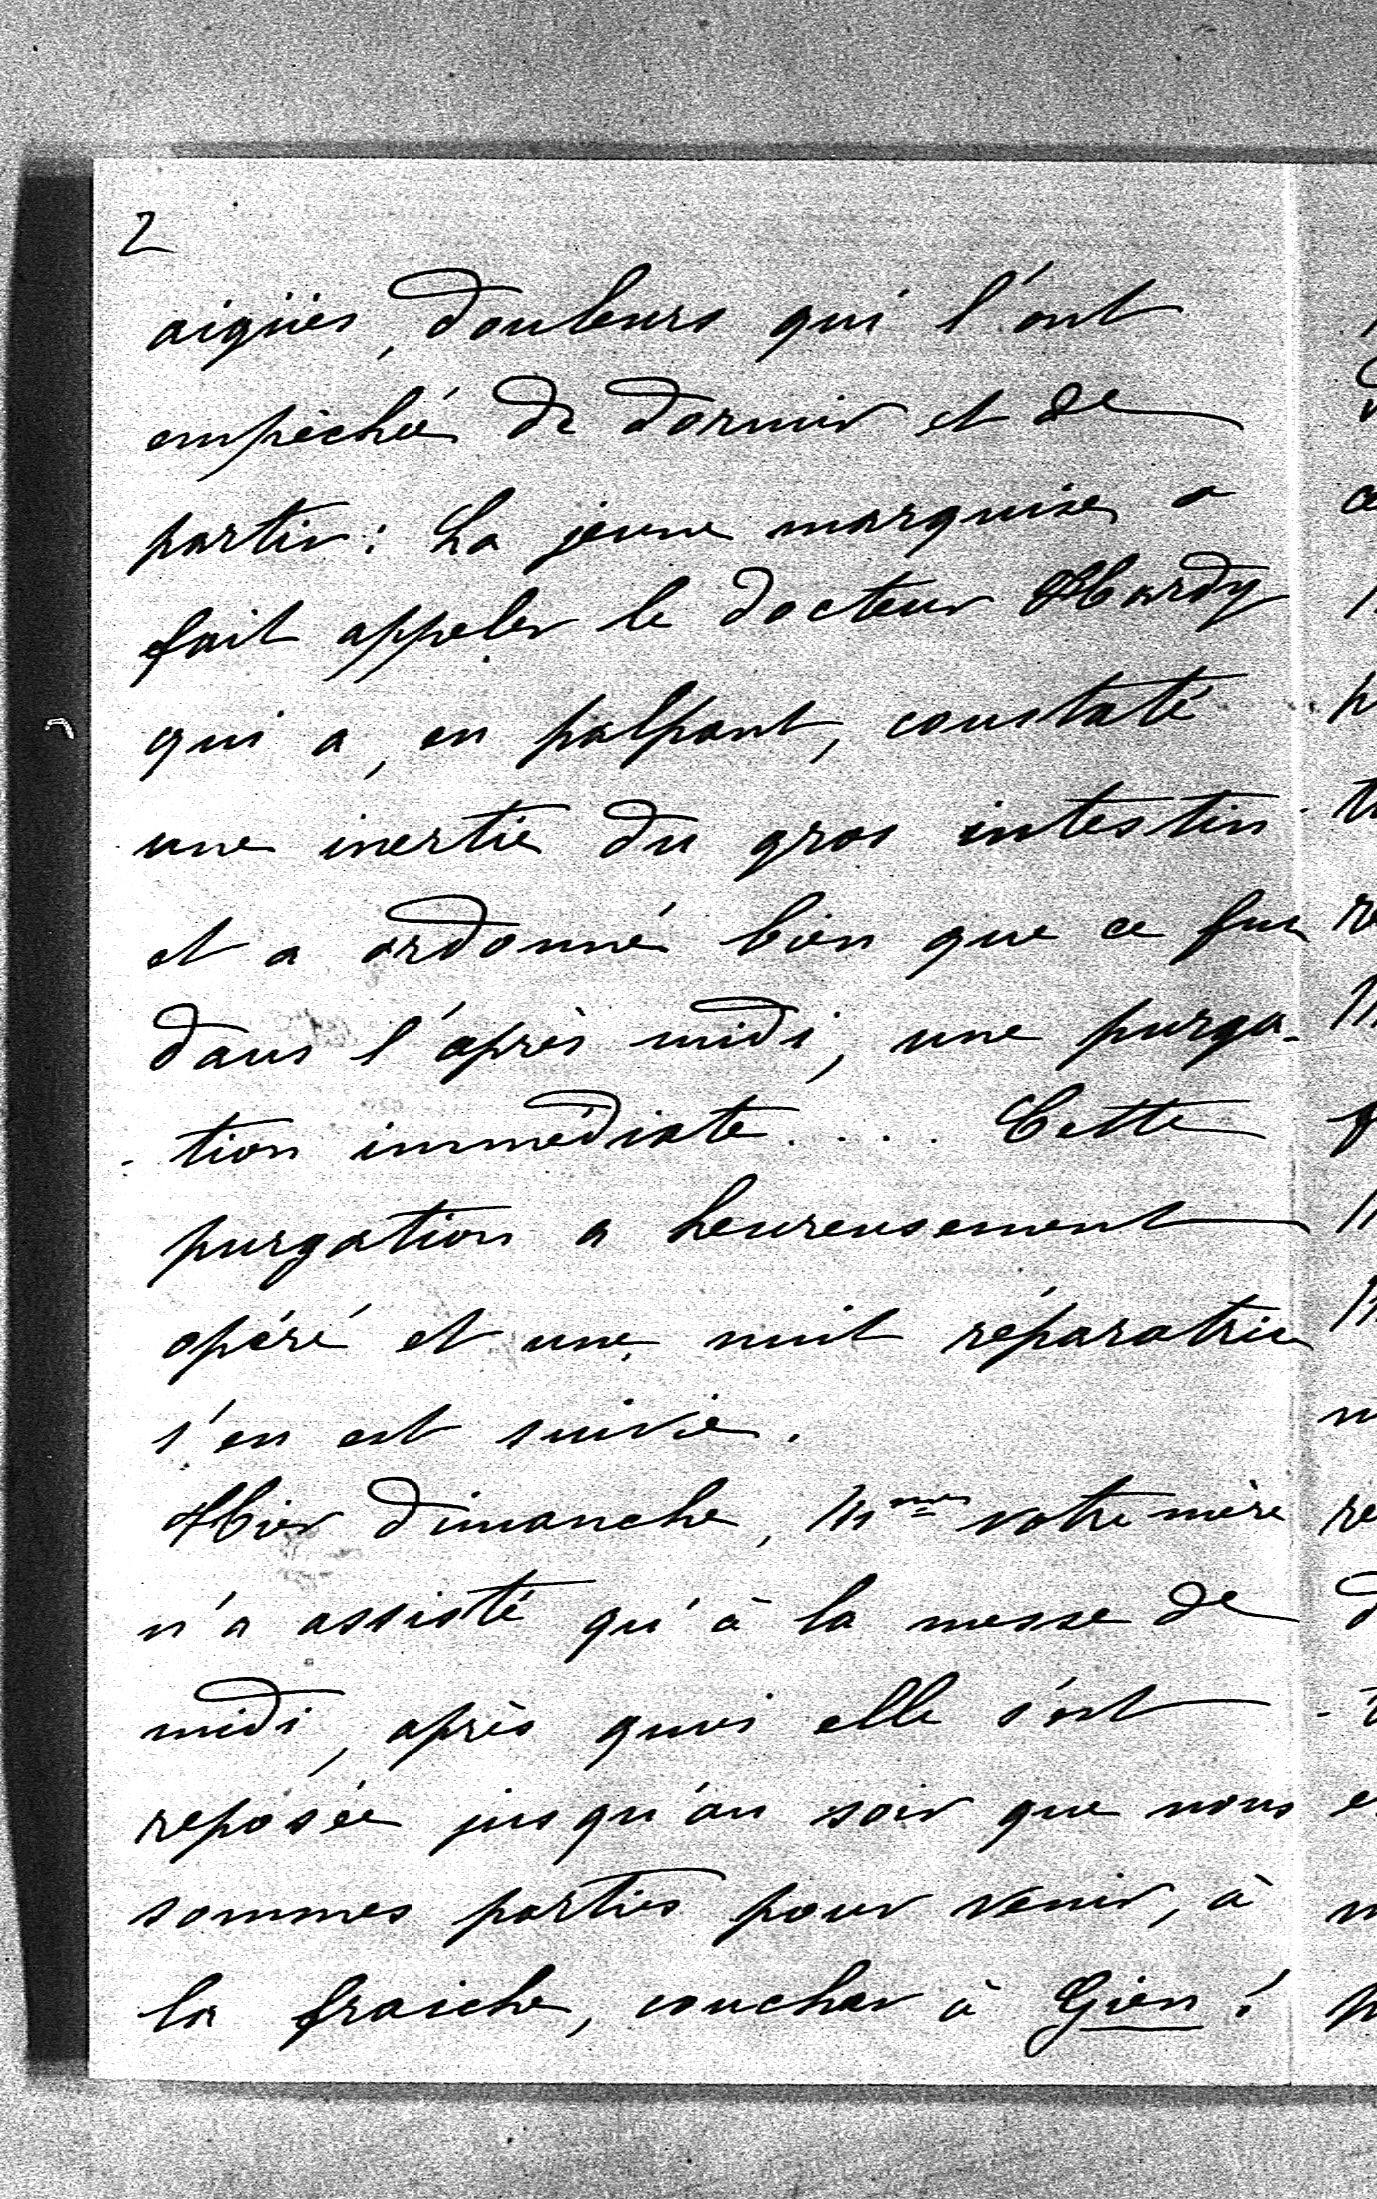 2
aigües, douleurs qui l'ont
empêché de dormir et de
partir : La jeune marquise a
fait appeler le docteur Hardy
qui a, en palpant, constaté
une inertie du gros intestin
et a ordonné bien que ce fut
dans l'après midi, une purga-
-tion immédiate.... Cette
purgation a heureusement
opéré et une nuit réparatrice
s'en est suivie.
Hier dimanche, Mme votre mère
n'a assisté qu'à la messe de
midi, après quoi elle s'est
reposée jusqu'au soir que nous
sommes partis pour venir, à
la fraiche, coucher à Gien !